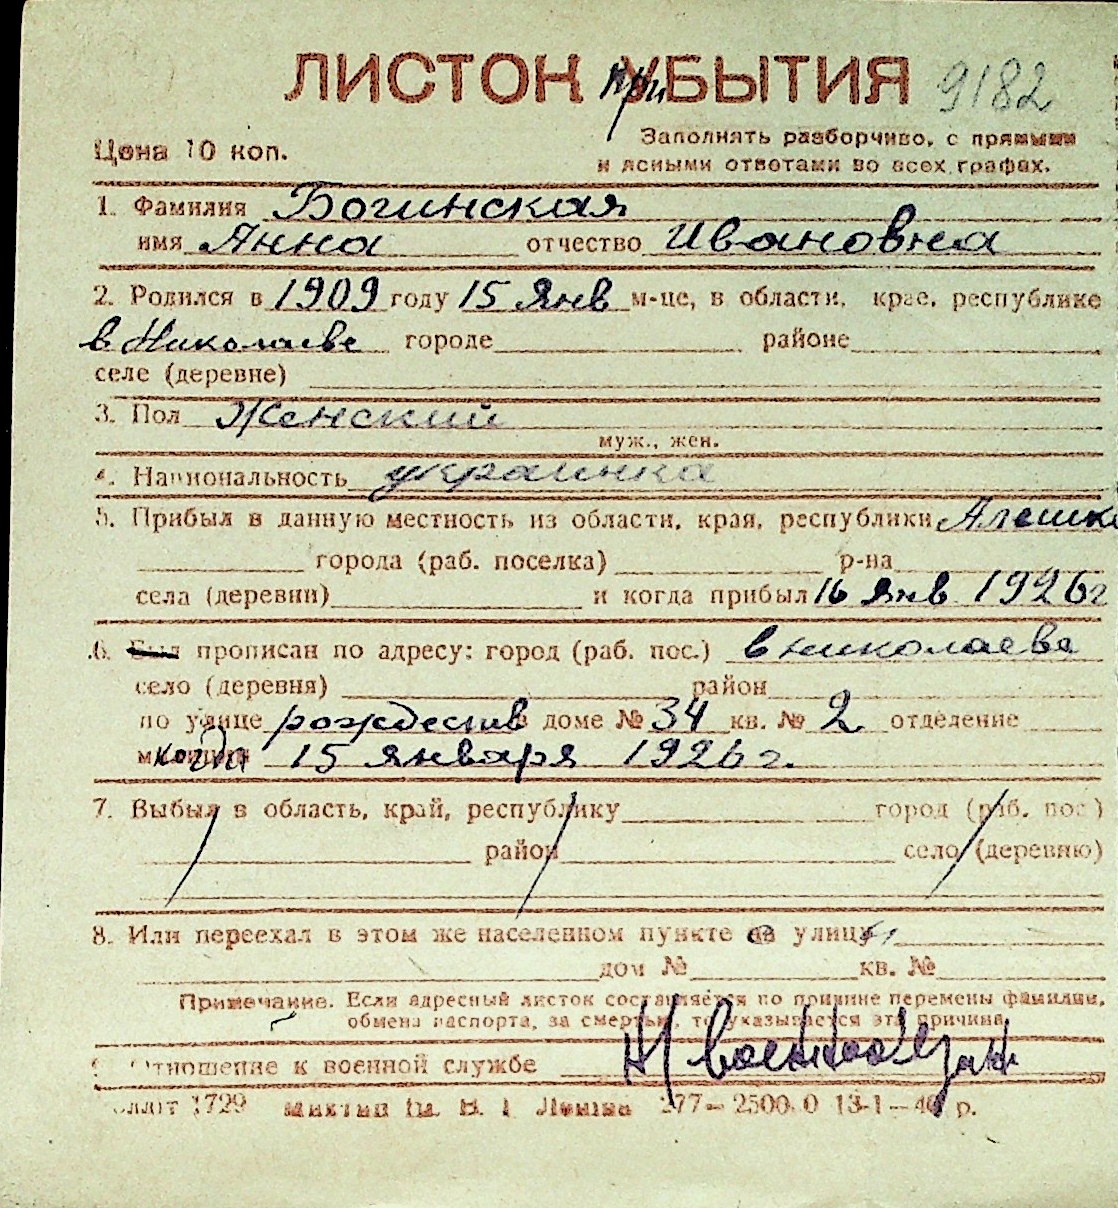 ЛИСТОК прибытия 9182
Цена 10 коп.
Заполнять разборчиво, с прямыми
и ясными ответами во всех графах.
1. Фамилия Богинская
имя Анна отчество Ивановна
2. Родился в 1909 году 15 янв м-це, в области, крае, республике
в Николаеве городе районе
селе (деревне)
3. Пол Женский
муж., жен.
4. Национальность украинка
5. Прибыл в данную местность из области, края, республики Алешки
города (раб. поселка) р-на
села (деревни) и когда прибыл 16 янв 1926г
6. Был прописан по адресу: город (раб. пос.) в николаеве
село (деревня) район
по улице рождеств в доме № 34 кв. № 2 отделение
когда 15 января 1926 г.
7. Выбыл в область, край, республику город (раб. пос.)
район село (деревню)
8. Или переехал в этом же населенном пункте на улицу
дом № кв. №
Примечание. Если адресный листок составляется по причине перемены фамилии,
обмена паспорта, за смертью, то указывается эта причина.
9. Отношение к военной службе Н/военнообязан
1729 им. В. І. Леніна 277—2500.0 13-1—40 р.